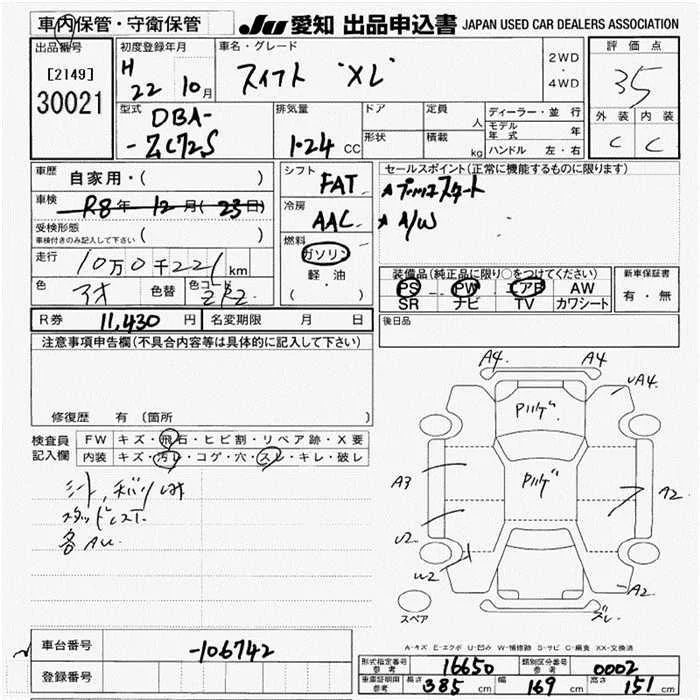 車内保管・守衛保管
JU 愛知 出品申込書 JAPAN USED CAR DEALERS ASSOCIATION
出品番号
[2149]
30021
初度登録年月
H 22 10月
車名・グレード
スイフト "XL"
2WD
・
4WD
評価点
3.5
外装 内装
C C
型式
DBA-
-ZC72S
排気量
1.24 CC
ドア
形状
定員 人
積載 kg
ディーラー・並行
モデル年式 年
ハンドル 左・右
車歴 自家用・( )
車検 R8年 12月( 23日)
受検形態
車検付きのみ記入して下さい ( )
走行 10万0千221km
色 アオ 色替 色コード ZKZ
シフト FAT
冷房 AAC
燃料
ガソリン
軽油
( )
セールスポイント(正常に機能するものに限ります)
★プッシュスタート
★A/W
装備品(純正品に限り○をつけてください)
PS PW エアB AW
SR ナビ TV カワシート
新車保証書
有・無
後日品
R券 11,430円 名変期限 月 日
注意事項申告欄(不具合内容等は具体的に記入して下さい)
修復歴 有 (箇所 )
検査員記入欄
FW キズ・飛石・ヒビ割・リペア跡・X要
内装 キズ・汚レ・コゲ・穴・スレ・キレ・破レ
各AU
A4 A4
A4
Pハゲ
Pハゲ
A3
A2
U2
U2
A2
ズレ
スペア
A-キズ E-エクボ U-凹み W-補修跡 S-サビ C-腐食 XX-交換済
車台番号 -106742
登録番号
形式指定番号 参考 16650 類別区分番号 参考 0002
車庫証明用 参考 長さ 385cm 幅 169cm 高さ 151cm